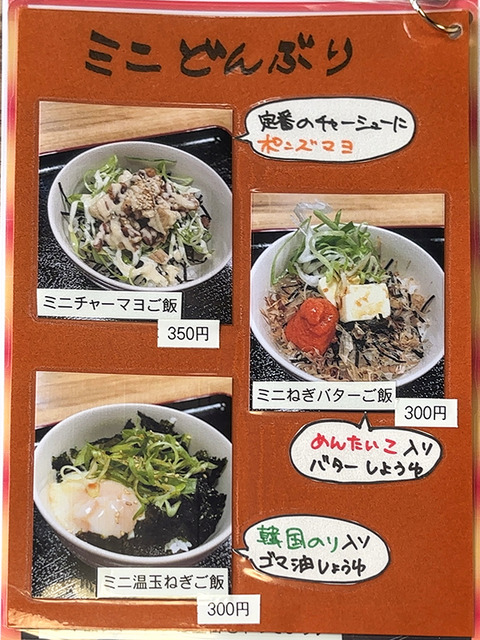 ミニどんぶり
定番のチャーシューに
ポンズマヨ
ミニチャーマヨご飯
350円
ミニねぎバターご飯
300円
めんたいこ入り
バターしょうゆ
韓国のり入り
ゴマ油しょうゆ
ミニ温玉ねぎご飯
300円